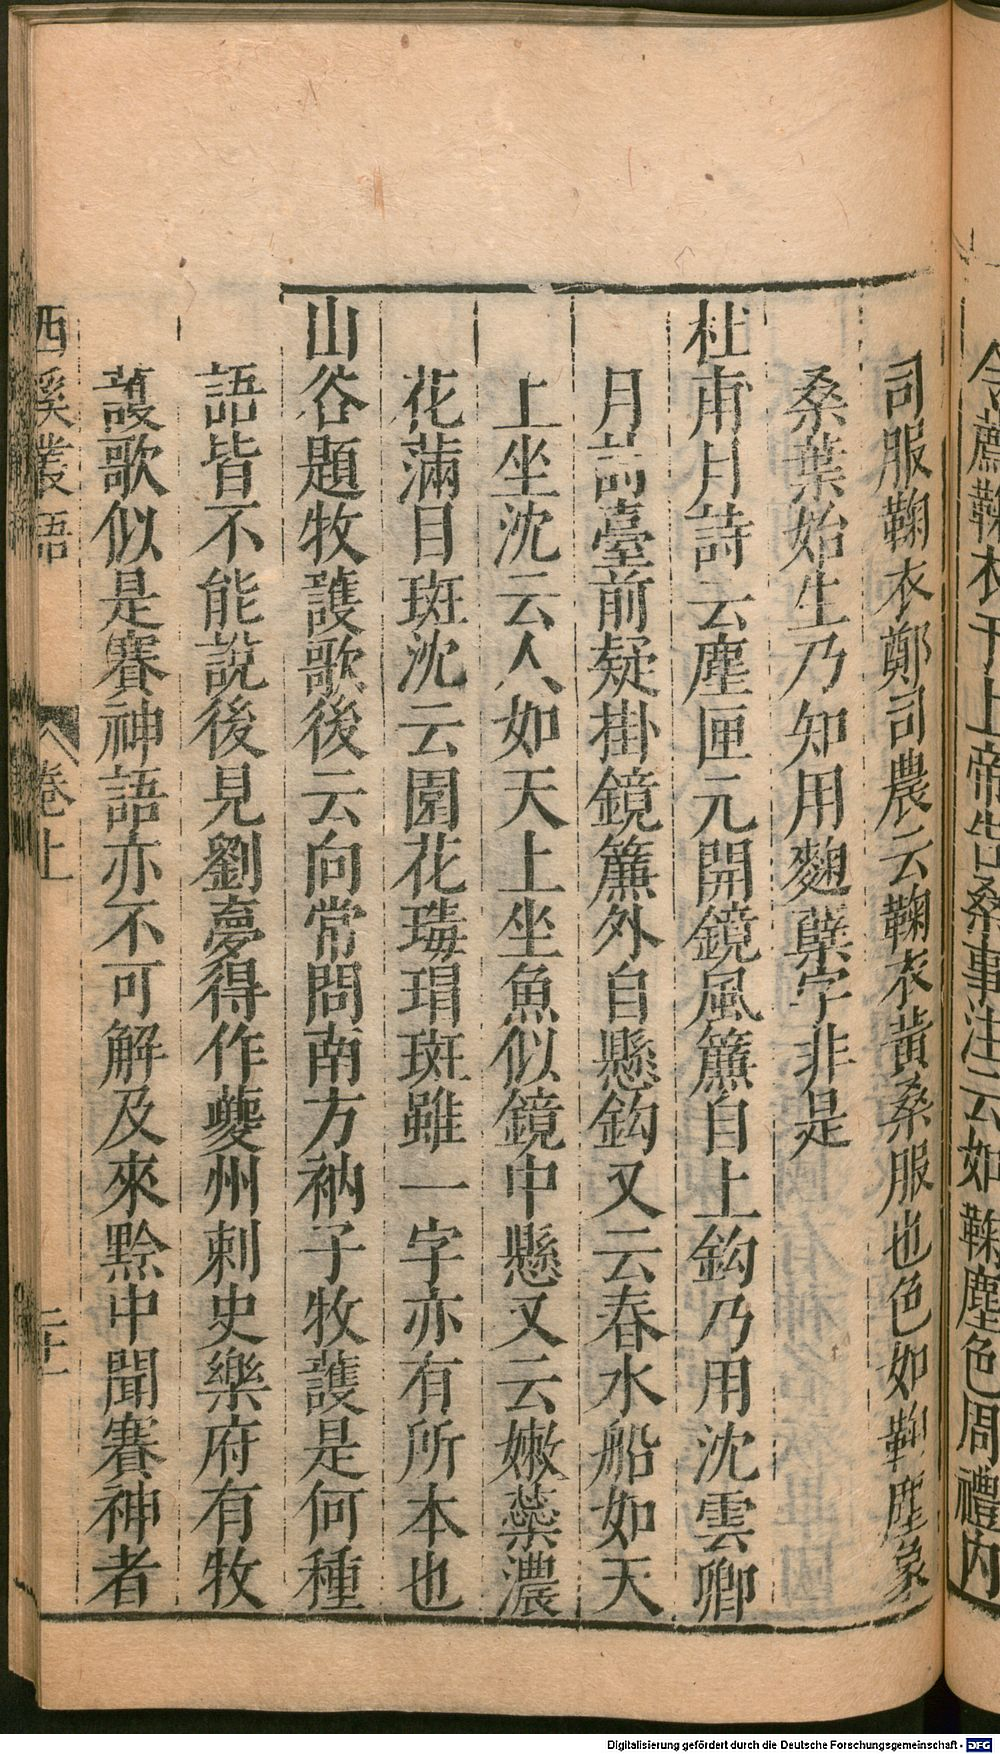 令薦鞠衣于上帝告桑事注云如鞠塵色周禮內
司服鞠衣鄭司農云鞠衣黃桑服也色如鞠塵象
桑葉始生乃知用麴糵字非是
杜甫月詩云塵匣元開鏡風簾自上鈎乃用沈雲卿
月詩臺前疑掛鏡簾外自懸鈎又云春水船如天
上坐沈云人如天上坐魚似鏡中懸又云嫩蘂濃
花滿目斑沈云園花瑇瑁斑雖一字亦有所本也
山谷題牧護歌後云向常問南方衲子牧護是何種
語皆不能說後見劉夢得作夔州刺史樂府有牧
護歌似是賽神語亦不可解及來黔中聞賽神者
西溪叢語
卷上
Digitalisierung gefördert durch die Deutsche Forschungsgemeinschaft - DFG